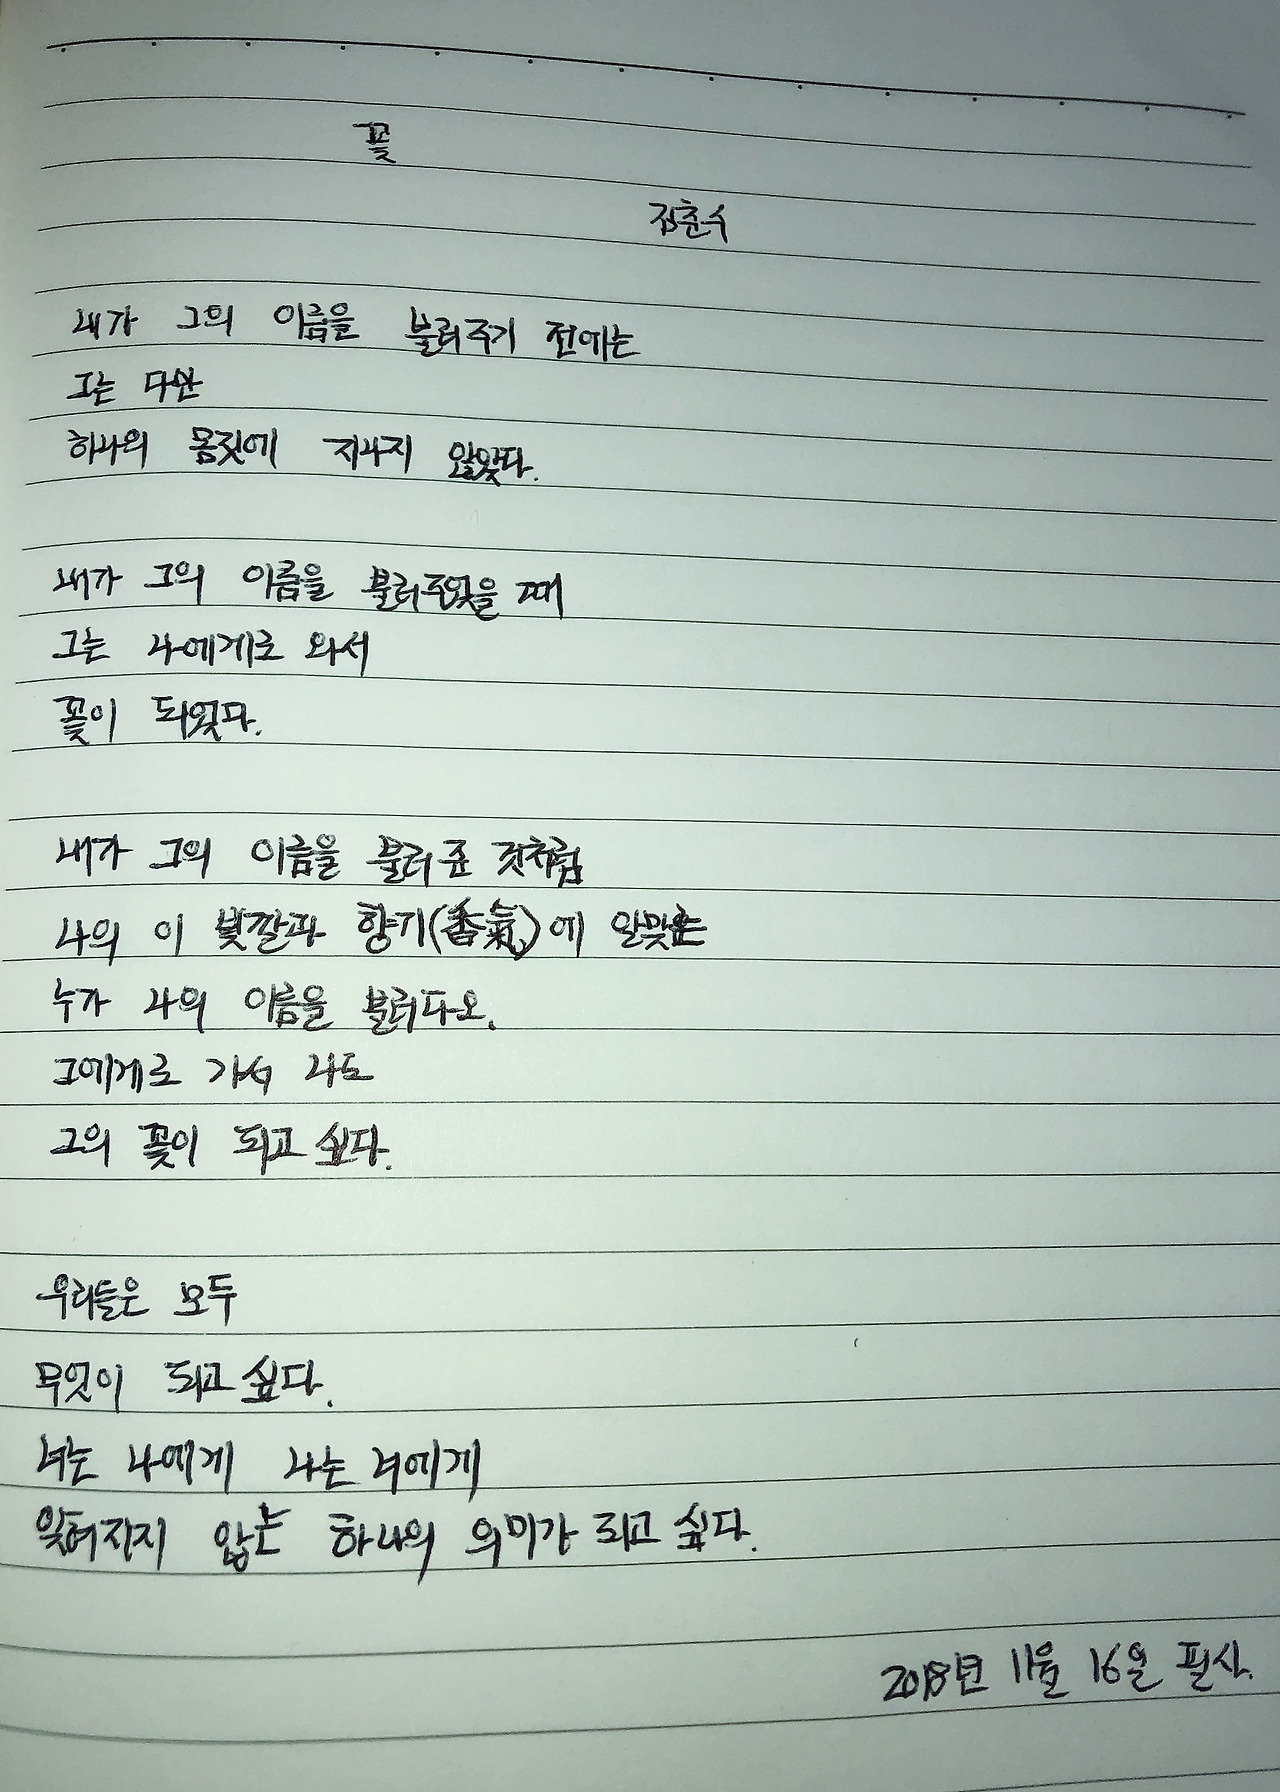 꽃
김춘수
내가 그의 이름을 불러주기 전에는
그는 다만
하나의 몸짓에 지나지 않았다.
내가 그의 이름을 불러주었을 때
그는 나에게로 와서
꽃이 되었다.
내가 그의 이름을 불러 준 것처럼
나의 이 빛깔과 향기(香氣)에 알맞는
누가 나의 이름을 불러다오.
그에게로 가서 나도
그의 꽃이 되고 싶다.
우리들은 모두
무엇이 되고 싶다.
너는 나에게 나는 너에게
잊혀지지 않는 하나의 의미가 되고 싶다.
2018년 11월 16일 필사.